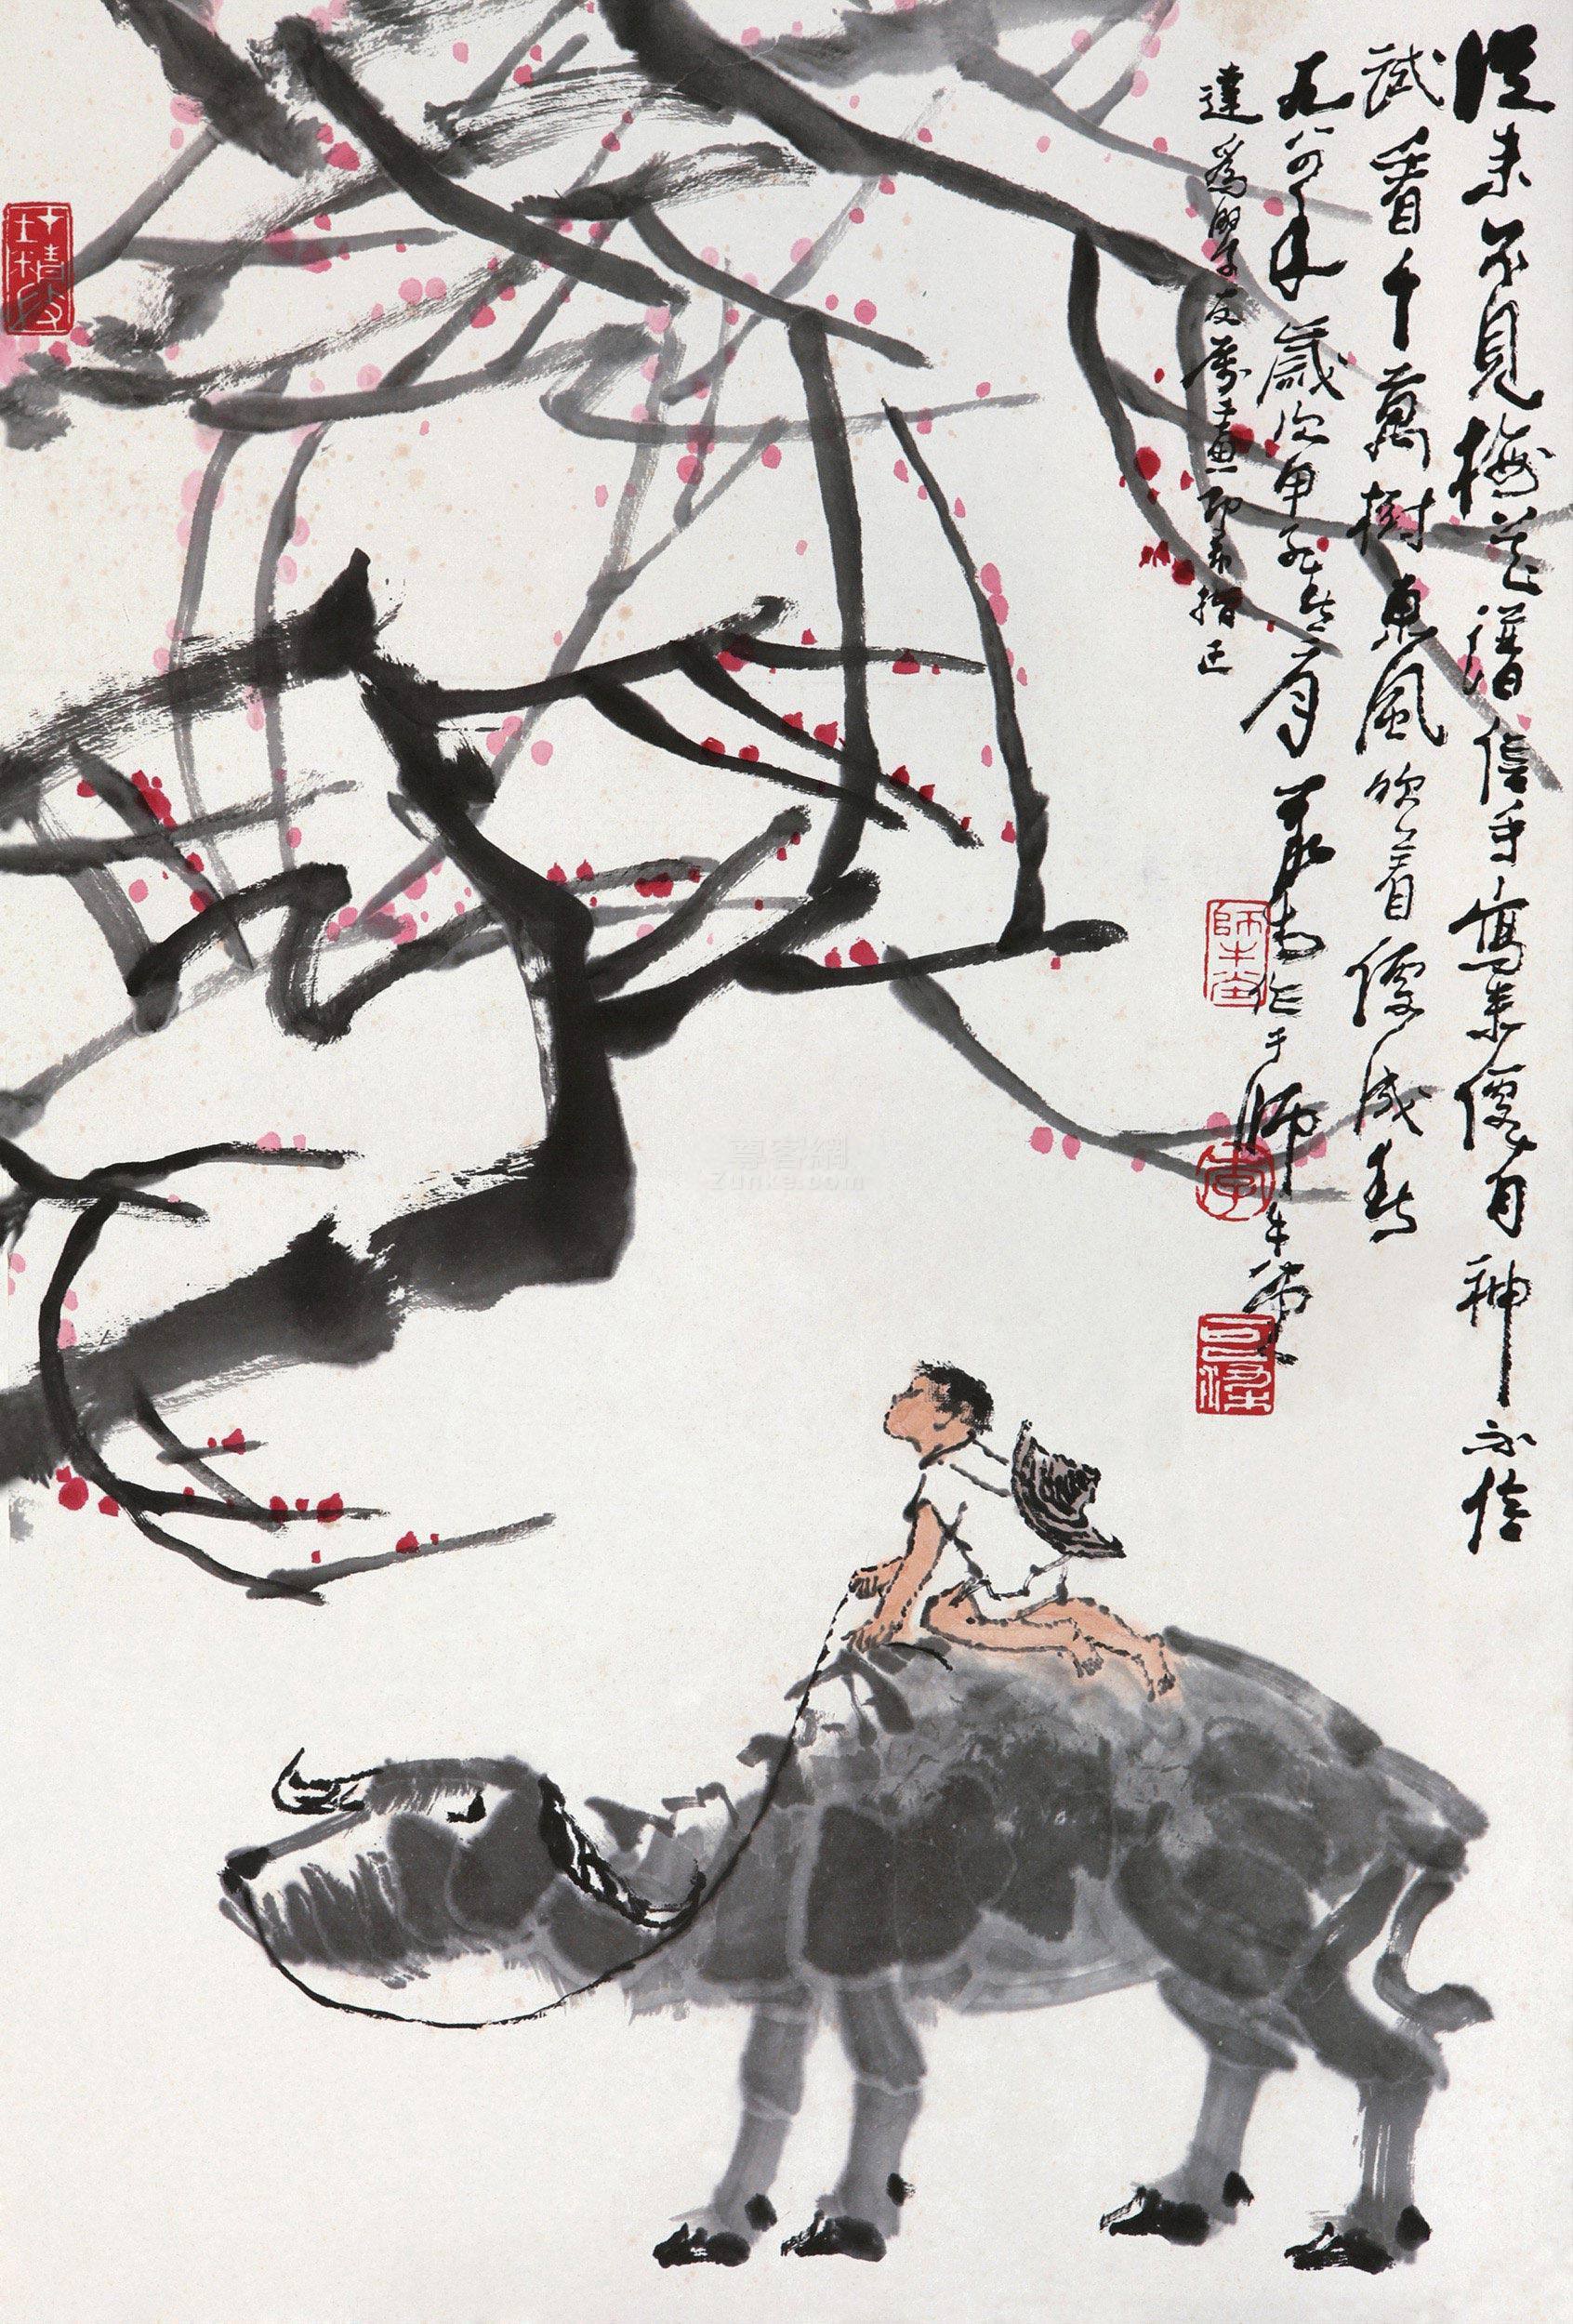 從来不見梅花譜信手寫来便有神不信
試看千萬樹東風吹着便成春
九八四年歲次甲子春月可染作于師牛堂
達爲學友屬畫即希指正
師牛堂
李
可染
尊客網
Zunke.com